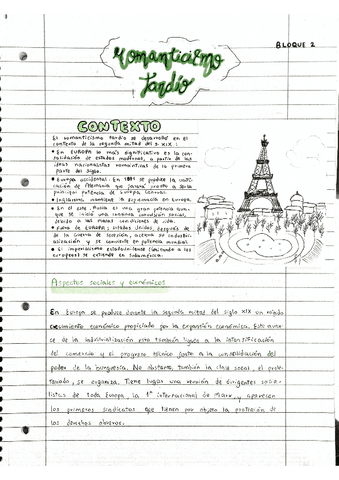 BLOQUE 2
Romanticismo
Tardío
CONTEXTO
El romanticismo tardío se desarrolla en el
contexto de la segunda mitad del s. XIX:
• En EUROPA lo más significativo es la con-
solidación de estados modernos, a partir de las
ideas nacionalistas románticas de la primera
parte del siglo.
• Europa occidental: En 1871 se produce la unifi-
cación de Alemania que pasará pronto a ser la
principal potencia de Europa Central.
• Inglaterra mantiene la supremacía en Europa.
• En el este, Rusia es una gran potencia aun-
que se inicia una intensa convulsión social,
debido a las malas condiciones de vida.
• Fuera de EUROPA: Estados Unidos después de
la Guerra de Secesión, acelera su industri-
alización y se convierte en potencia mundial.
• El imperialismo estadounidense (imitando a los
europeos) se extiende en Sudamérica.
Aspectos sociales y económicos
En Europa se produce durante la segunda mitad del siglo XIX un rápido
crecimiento económico propiciado por la expansión económica. Este avan-
ce de la industrialización esta también ligado a la intensificación
del comercio y el progreso técnico junto a la consolidación del
poder de la burguesía. No obstante, también la clase social, el prole-
tariado, se organiza. Tiene lugar una reunión de dirigentes socia-
listas de toda Europa, la 1ª internacional de Marx, y aparecen
los primeros sindicatos que tienen por objeto la protección de
los derechos obreros.